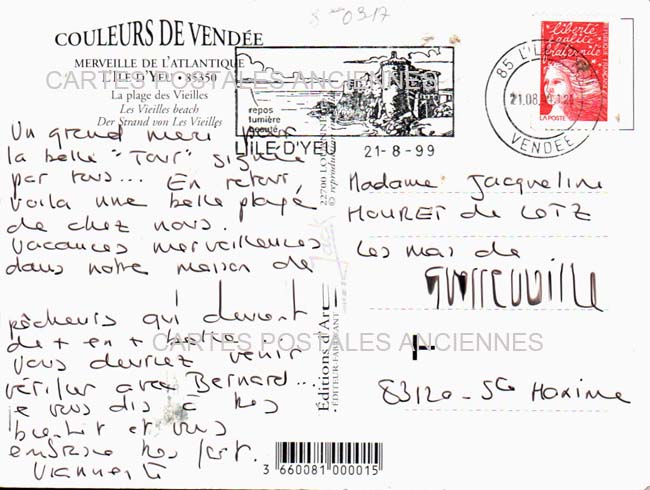 0317
COULEURS DE VENDÉE
MERVEILLE DE L'ATLANTIQUE
L'ILE D'YEU • 85350
La plage des Vieilles
Les Vieilles beach
Der Strand von Les Vieilles
CARTES POSTALES ANCIENNES
repos
lumière
beauté
L'ILE D'YEU
21-8-99
85 L'ILE
21.08.
VENDÉE
liberté
égalité
fraternité
LA POSTE
Un grand merci pour
la belle "Tour" signée
par tous... En retour,
voilà une belle plage
de chez nous.
Vacances merveilleuses
dans notre maison de
pêcheurs qui devient
de + en + belle.
Vous devriez venir
vérifier avec Bernard...
Je vous dis à très
bientôt et vous
embrasse très fort.
Editions d'Art
• EDITEUR-FABRICANT •
Jack
22700
© reproduction
Madame Jacqueline
MOURET de LOTZ
Les mas de
Guerrevieille
83120 - Ste Maxime
CARTES POSTALES ANCIENNES
3 660081 000015